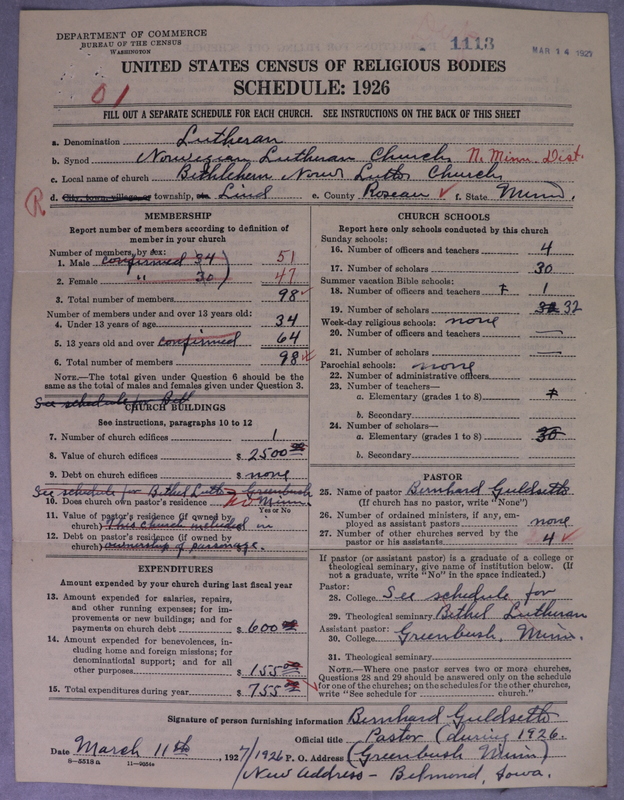 DEPARTMENT OF COMMERCE
BUREAU OF THE CENSUS
WASHINGTON
1113
MAR 14 1927
UNITED STATES CENSUS OF RELIGIOUS BODIES
SCHEDULE: 1926
01
FILL OUT A SEPARATE SCHEDULE FOR EACH CHURCH. SEE INSTRUCTIONS ON THE BACK OF THIS SHEET
a. Denomination Lutheran
b. Synod Norwegian Lutheran Church N. Minn. Dist.
c. Local name of church Bethlehem Norw Luth Church
R
d. City, town, village, or township, Lind e. County Roseau f. State Minn.
MEMBERSHIP
Report number of members according to definition of member in your church
Number of members by sex:
1. Male confirmed 34 51
2. Female " 30 47
3. Total number of members 98
Number of members under and over 13 years old:
4. Under 13 years of age 34
5. 13 years old and over confirmed 64
6. Total number of members 98
NOTE.—The total given under Question 6 should be the
same as the total of males and females given under Question 3.
See schedule for Beth
CHURCH BUILDINGS
See instructions, paragraphs 10 to 12
7. Number of church edifices 1
8. Value of church edifices $ 2500
9. Debt on church edifices $ none
See schedule for Bethel Luth Greenbush
10. Does church own pastor's residence Minn
Yes or No
11. Value of pastor's residence (if owned by
church) This church included in
12. Debt on pastor's residence (if owned by
church) ownership of parsonage.
EXPENDITURES
Amount expended by your church during last fiscal year
13. Amount expended for salaries, repairs,
and other running expenses; for im-
provements or new buildings; and for
payments on church debt $ 600
14. Amount expended for benevolences, in-
cluding home and foreign missions; for
denominational support; and for all
other purposes $ 155 00
15. Total expenditures during year $ 755
CHURCH SCHOOLS
Report here only schools conducted by this church
Sunday schools:
16. Number of officers and teachers 4
17. Number of scholars 30
Summer vacation Bible schools:
18. Number of officers and teachers 1
19. Number of scholars 32 32
Week-day religious schools: none
20. Number of officers and teachers —
21. Number of scholars —
Parochial schools: none
22. Number of administrative officers
23. Number of teachers—
a. Elementary (grades 1 to 8)
b. Secondary
24. Number of scholars—
a. Elementary (grades 1 to 8) 30
b. Secondary
PASTOR
25. Name of pastor Bernhard Guldseth
(If church has no pastor, write "None")
26. Number of ordained ministers, if any, em-
ployed as assistant pastors none
27. Number of other churches served by the
pastor or his assistants 4
If pastor (or assistant pastor) is a graduate of a college or
theological seminary, give name of institution below. (If
not a graduate, write "No" in the space indicated.)
Pastor:
28. College See schedule for
29. Theological seminary Bethel Lutheran
Assistant pastor:
30. College Greenbush, Minn.
31. Theological seminary
NOTE.—Where one pastor serves two or more churches,
Questions 28 and 29 should be answered only on the schedule
for one of the churches; on the schedules for the other churches,
write "See schedule for church."
Signature of person furnishing information Bernhard Guldseth
Official title Pastor (during 1926.
Date March 11th, 1927/1926 P. O. Address (Greenbush Minn)
8-5518 a
New Address – Belmond, Iowa.